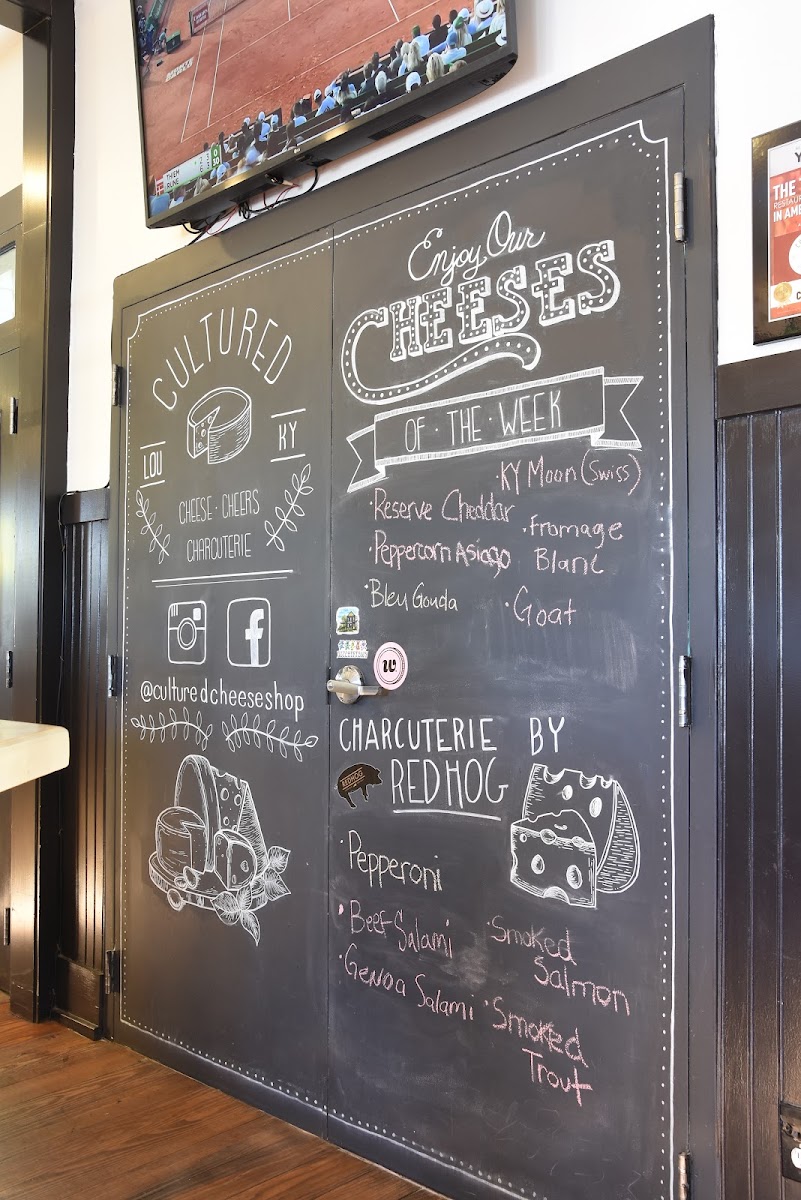 THIEM 2 0
RUNE 30
CULTURED
LOU KY
CHEESE · CHEERS
CHARCUTERIE
f
@culturedcheeseshop
Enjoy Our
CHEESES
OF · THE · WEEK
· KY Moon (Swiss)
· Reserve Cheddar
· Fromage
Blanc
· Peppercorn Asiago
· Bleu Gouda
· Goat
w
CHARCUTERIE BY
REDHOG
REDHOG
· Pepperoni
· Beef Salami
· Genoa Salami
· Smoked
Salmon
· Smoked
Trout
Y
THE
RESTAU
IN AM